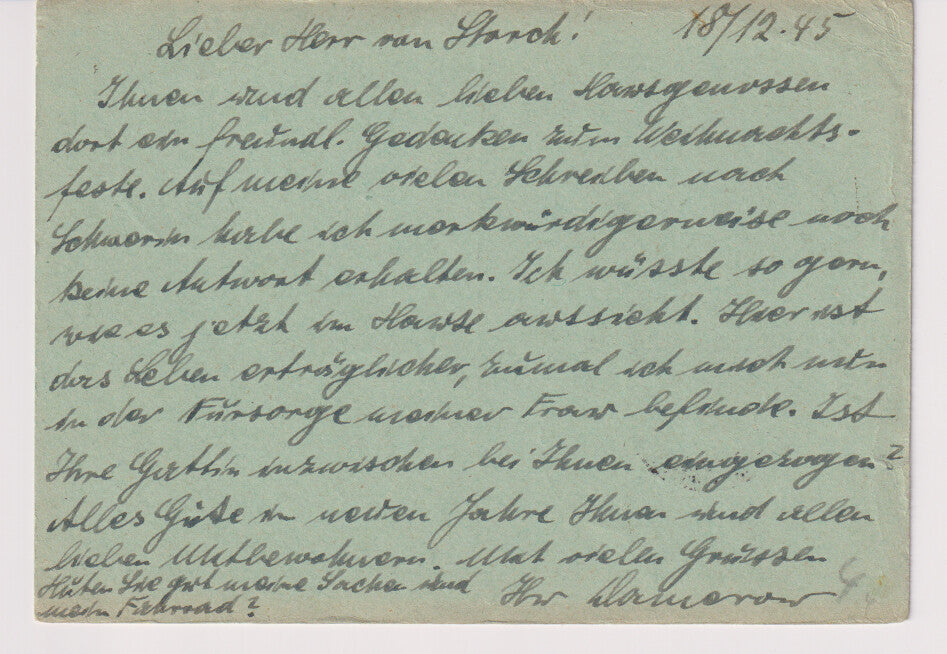 18/12.45
Lieber Herr von Storch!
Ihnen und allen lieben Hausgenossen
dort ein freundl. Gedenken zum Weihnachts-
feste. Auf meine vielen Schreiben nach
Schwerin habe ich merkwürdigerweise noch
keine Antwort erhalten. Ich wüsste so gern,
wie es jetzt im Hause aussieht. Hier ist
das Leben erträglicher, zumal ich mich nun
in der Fürsorge meiner Frau befinde. Ist
Ihre Gattin inzwischen bei Ihnen eingezogen?
Alles Gute im neuen Jahre Ihnen und allen
lieben Mitbewohnern. Mit vielen Grüssen
Hüten Sie gut meine Sachen und
mein Fahrrad?
Ihr Damerow